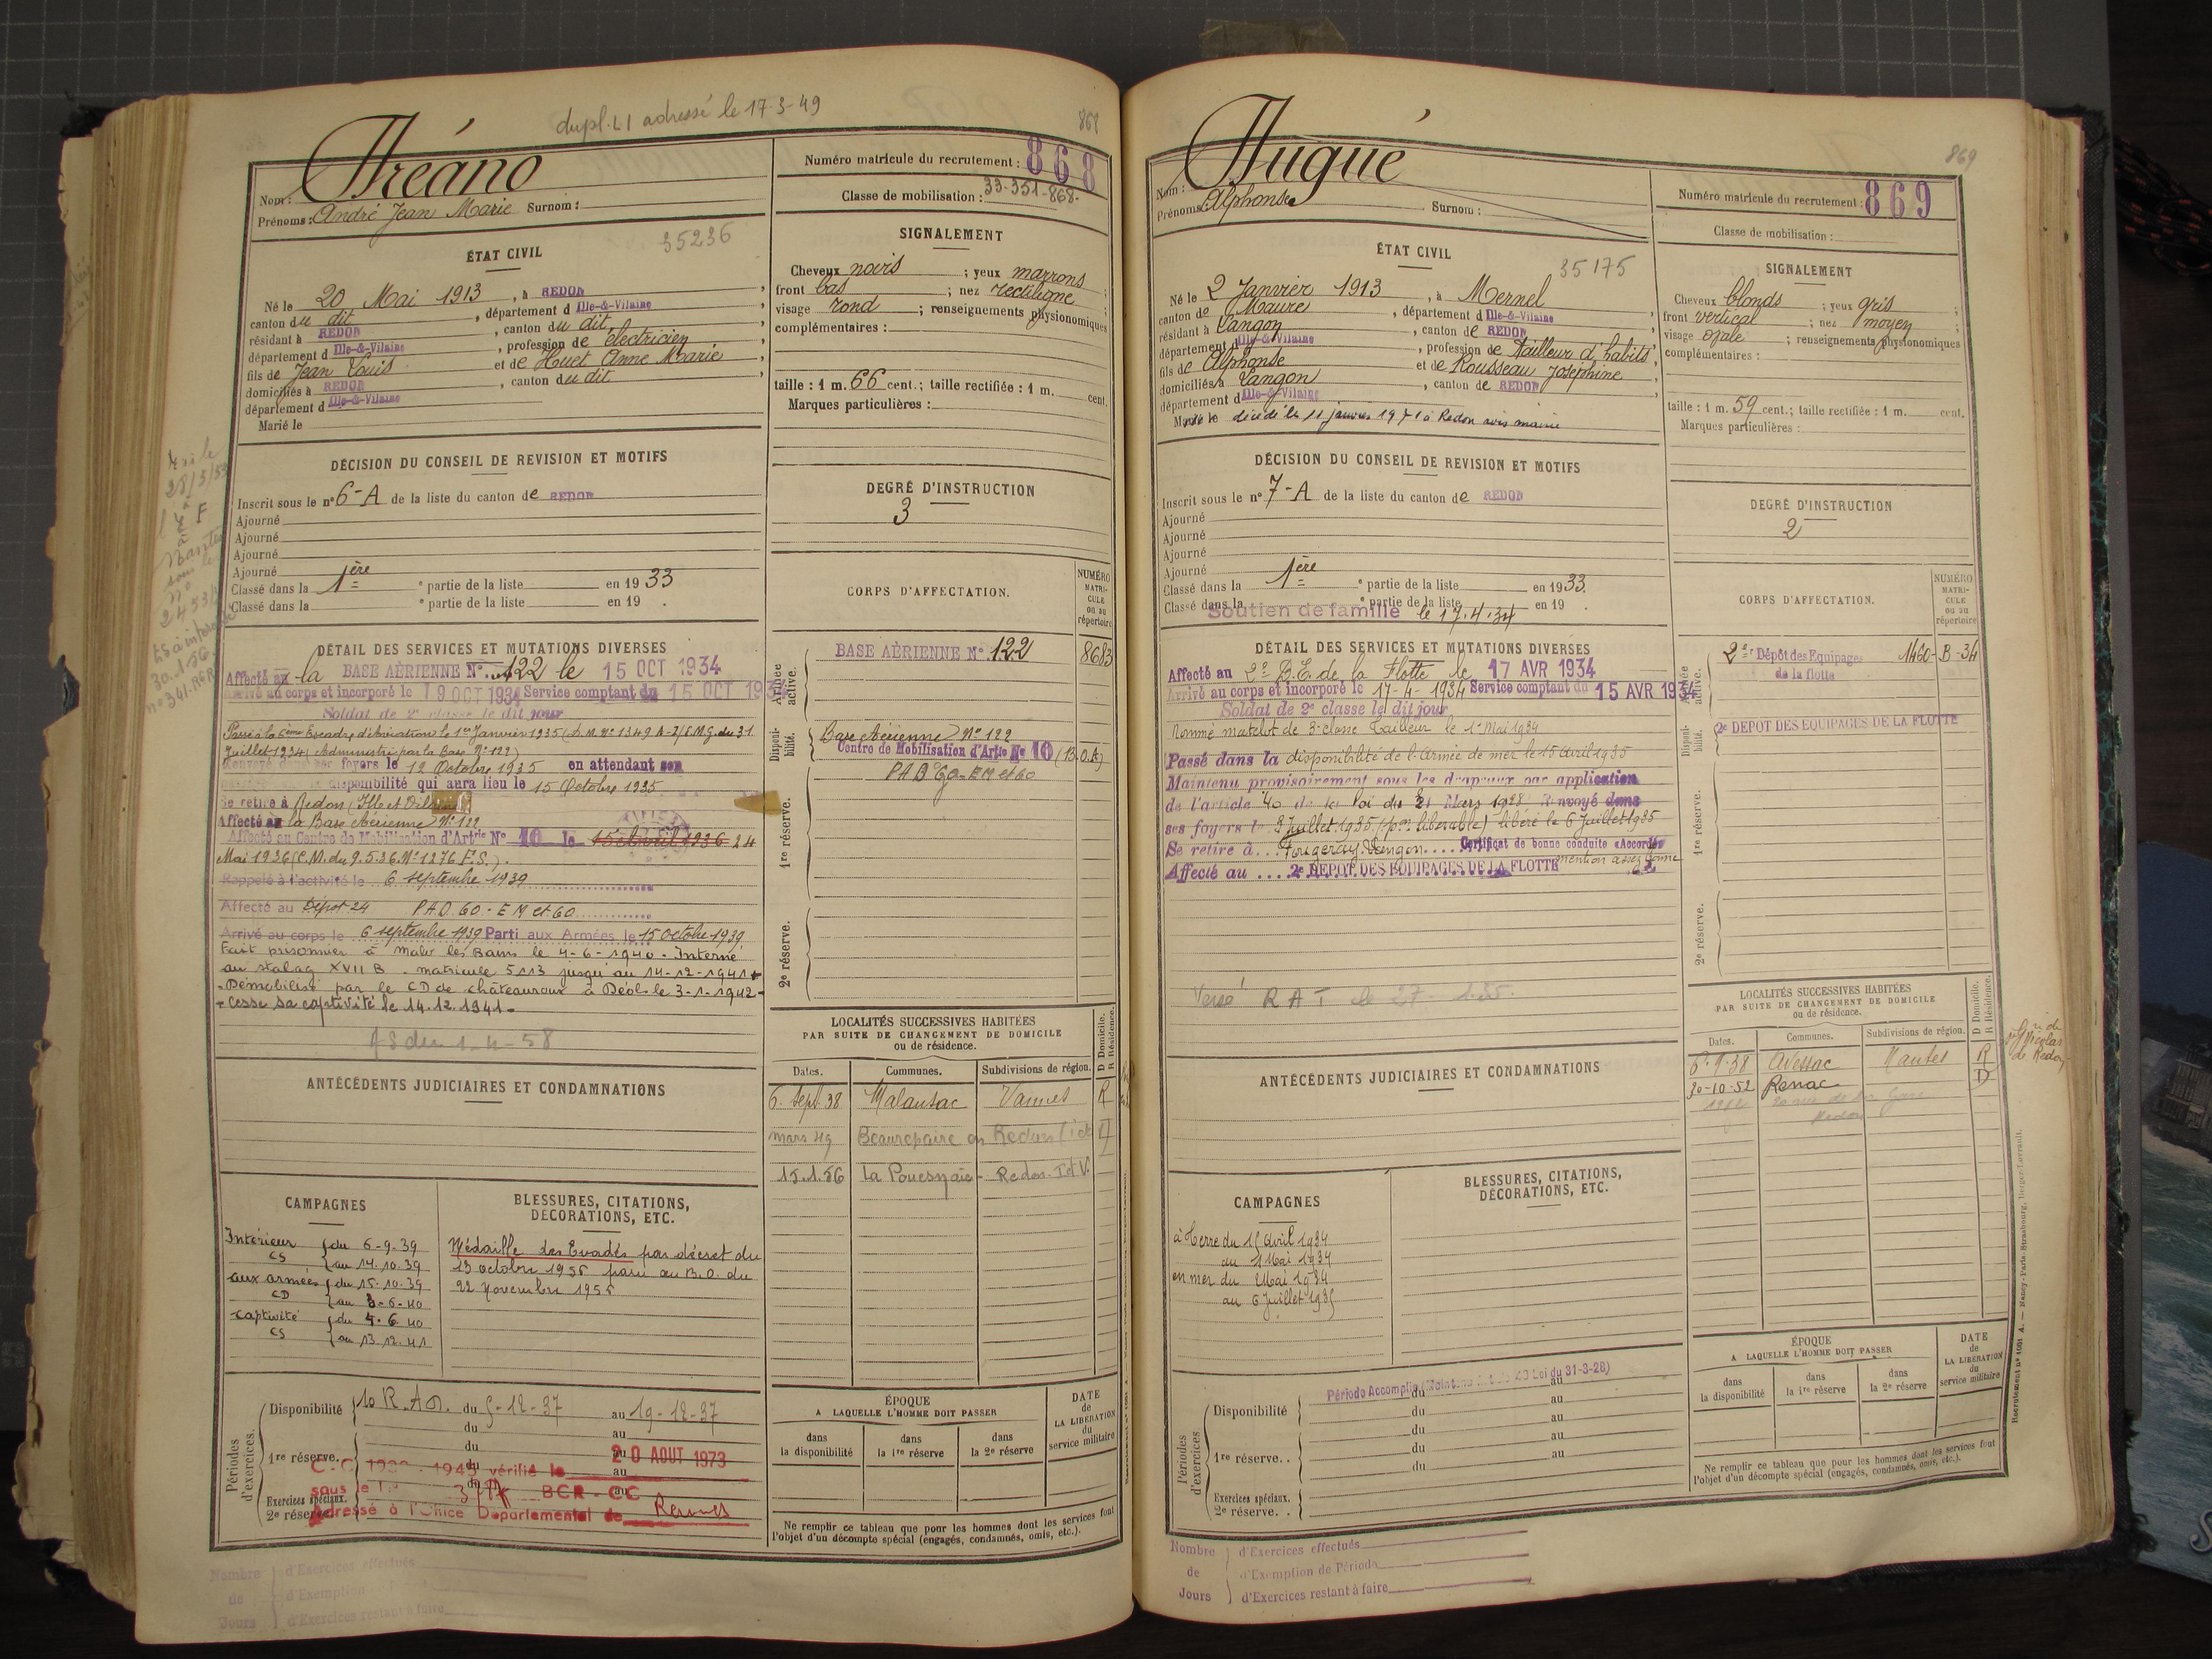 dupl. LI adressé le 17-3-49
868
Nom : Tréano
Prénoms : André Jean Marie Surnom :
Numéro matricule du recrutement : 868
Classe de mobilisation : 33-351-868.
ÉTAT CIVIL
35236
Né le 20 Mai 1913, à REDON,
canton du dit, département d Ille-&-Vilaine
résidant à REDON, canton du dit,
département d Ille-&-Vilaine, profession de électricien
fils de Jean Louis et de Huet Anne Marie,
domiciliés à REDON, canton du dit
département d Ille-&-Vilaine
Marié le
SIGNALEMENT
Cheveux noirs ; yeux marrons
front bas ; nez rectiligne
visage rond ; renseignements physionomiques
complémentaires :
taille : 1 m. 66 cent. ; taille rectifiée : 1 m. cent.
Marques particulières :
DÉCISION DU CONSEIL DE REVISION ET MOTIFS
Inscrit sous le n° 6-A de la liste du canton de REDON
Ajourné
Ajourné
Ajourné
Ajourné
Classé dans la 1ère ᵉ partie de la liste en 1933
Classé dans la ᵉ partie de la liste en 19 .
DEGRÉ D'INSTRUCTION
3
DÉTAIL DES SERVICES ET MUTATIONS DIVERSES
Affecté au la BASE AÉRIENNE N° 122 le 15 OCT 1934
Arrivé au corps et incorporé le 19 OCT 1934 Service comptant du 15 OCT 1934
Soldat de 2e classe le dit jour
Passé à la 6ème Escadre d'Aviation le 1er Janvier 1935 (D.M. N° 1349 A-3/E.M.G. du 31
Juillet 1934) Administré par la Base N° 122)
foyers le 12 Octobre 1935 en attendant son
disponibilité qui aura lieu le 15 Octobre 1935
Se retire à Redon (Ille et Vilaine)
Affecté au la Base Aérienne N° 122
Affecté au Centre de Mobilisation d'Artrie N° 10 le 15 Avril 1936 24
Mai 1936 (C.M. du 9.5.36. N° 1276 E.S.).
Rappelé à l'activité le 6 septembre 1939
Affecté au Dépôt 24 P.A.D. 60 - E M et 60
Arrivé au corps le 6 septembre 1939 Parti aux Armées le 15 octobre 1939
Fait prisonnier à Malo les Bains le 4-6-1940 - Interné
au stalag XVII B - matricule 5113 jusqu'au 14-12-1941
- Démobilisé par le CD de châteauroux à Déols le 3-1-1942 -
- Cesse sa captivité le 14.12.1941 -
CORPS D'AFFECTATION.
NUMÉRO MATRICULE ou au répertoire
Armée active.
BASE AÉRIENNE N° 122
8683
Disponibilité.
Base Aérienne N° 122
Centre de Mobilisation d'Artie N° 10
1re réserve.
2e réserve.
LOCALITÉS SUCCESSIVES HABITÉES
PAR SUITE DE CHANGEMENT DE DOMICILE
ou de résidence.
Dates. Communes. Subdivisions de région. D Domicile. R Résidence.
6. Sept. 38 Malansac Vannes R
mars 49 Beaurepaire en Redon
15.1.56 Redon I et V.
ANTÉCÉDENTS JUDICIAIRES ET CONDAMNATIONS
CAMPAGNES
Intérieur du 6-9-39
CS au 14.10.39
aux armées du 15.10.39
CD au 3-6-40
captivité du 4.6.40
CS au 13.12.41
BLESSURES, CITATIONS,
DÉCORATIONS, ETC.
Médaille des Evadés par décret du
13 octobre 1955 paru au B.O. du
22 Novembre 1955
Périodes d'exercices.
Disponibilité 10 R.A.D. du 5-12-37 au 19-12-37
du au
1re réserve. du au 20 AOUT 1973
vérifié le
sous le BCR - CC
Exercices spéciaux.
2e réserve.
Adressé à l'Office Départemental de Rennes
ÉPOQUE
A LAQUELLE L'HOMME DOIT PASSER
dans la disponibilité dans la 1re réserve dans la 2e réserve
DATE de LA LIBÉRATION du service militaire
Ne remplir ce tableau que pour les hommes dont les services font
l'objet d'un décompte spécial (engagés, condamnés, omis, etc.).
Nombre de Jours
d'Exercices effectués
d'Exemption
d'Exercices restant à faire
869
Nom : Hugué
Prénoms : Alphonse Surnom :
Numéro matricule du recrutement : 869
Classe de mobilisation :
ÉTAT CIVIL
35175
Né le 2 Janvier 1913, à Mernel
canton de Maure, département d Ille-&-Vilaine
résidant à Langon, canton de REDON
département d Ille-&-Vilaine, profession de Tailleur d'habits,
fils de Alphonse et de Rousseau Joséphine,
domiciliés à Langon, canton de REDON
département d Ille-&-Vilaine
Marié le décédé le 11 janvier 1971 à Redon avis mairie
SIGNALEMENT
Cheveux blonds ; yeux gris
front vertical ; nez moyen
visage ovale ; renseignements physionomiques
complémentaires :
taille : 1 m. 59 cent. ; taille rectifiée : 1 m. cent.
Marques particulières :
DÉCISION DU CONSEIL DE REVISION ET MOTIFS
Inscrit sous le n° 7-A de la liste du canton de REDON
Ajourné
Ajourné
Ajourné
Ajourné
Classé dans la 1ère ᵉ partie de la liste en 1933.
Classé dans la ᵉ partie de la liste en 19 .
Soutien de famille le 17.4.34
DEGRÉ D'INSTRUCTION
2
DÉTAIL DES SERVICES ET MUTATIONS DIVERSES
Affecté au 2e D.E. de la Flotte le 17 AVR 1934
Arrivé au corps et incorporé le 17-4-1934 Service comptant du 15 AVR 1934
Soldat de 2e classe le dit jour
Nommé matelot de 3e classe Tailleur le 1er Mai 1934
Passé dans la disponibilité de l'Armée de mer le 15 avril 1935
Maintenu provisoirement sous les drapeaux par application
de l'article 40 de la loi du 31 Mars 1928 Renvoyé dans
ses foyers le 3 Juillet 1935 (libérable) libéré le 6 Juillet 1935
Se retire à Fougeray-Langon Certificat de bonne conduite "Accordé"
mention assez bonne
Affecté au 2e DEPOT DES EQUIPAGES DE LA FLOTTE
Versé R A T le 27. 1.55.
CORPS D'AFFECTATION.
NUMÉRO MATRICULE ou au répertoire
Armée active.
2e Dépôt des Equipages
de la flotte
1460-B-34
Disponibilité.
2e DEPOT DES EQUIPAGES DE LA FLOTTE
1re réserve.
2e réserve.
LOCALITÉS SUCCESSIVES HABITÉES
PAR SUITE DE CHANGEMENT DE DOMICILE
ou de résidence.
Dates. Communes. Subdivisions de région. D Domicile. R Résidence.
6.9.38 Avessac Nantes R
30-10-52 Renac D
Redon
St Nicolas
de Redon
ANTÉCÉDENTS JUDICIAIRES ET CONDAMNATIONS
CAMPAGNES
à terre du 15 Avril 1934
au 1 Mai 1934
en mer du 2 Mai 1934
au 6 Juillet 1935
BLESSURES, CITATIONS,
DÉCORATIONS, ETC.
Période Accomplie Loi du 31-3-28)
Périodes d'exercices
Disponibilité du au
du au
1re réserve. . du au
du au
Exercices spéciaux.
2e réserve. .
ÉPOQUE
A LAQUELLE L'HOMME DOIT PASSER
dans la disponibilité dans la 1re réserve dans la 2e réserve
DATE de LA LIBÉRATION du service militaire
Ne remplir ce tableau que pour les hommes dont les services font
l'objet d'un décompte spécial (engagés, condamnés, omis, etc.).
Nombre de Jours
d'Exercices effectués
d'Exemption de Période
d'Exercices restant à faire
Recrutement n° 1091 A. — Nancy-Paris-Strasbourg, Berger-Levrault.